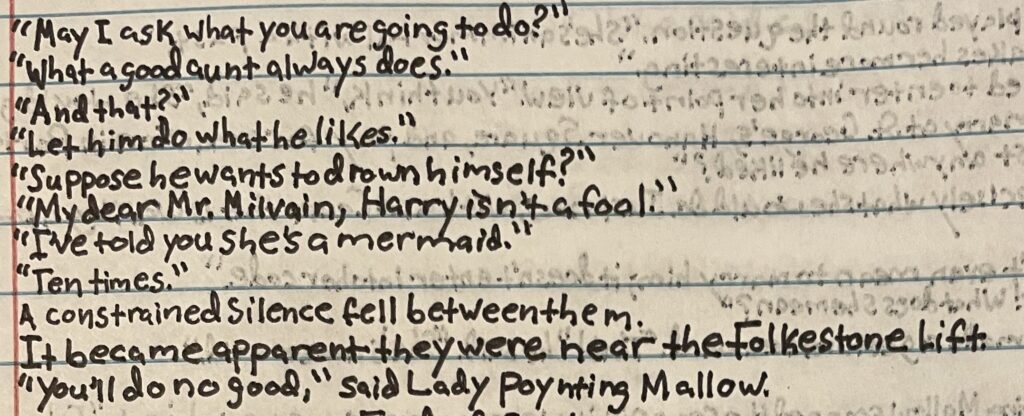 "May I ask what you are going to do?"
"What a good aunt always does."
"And that?"
"Let him do what he likes."
"Suppose he wants to drown himself?"
"My dear Mr. Milvain, Harry isn't a fool."
"I've told you she's a mermaid."
"Ten times."
A constrained silence fell between them.
It became apparent they were near the Folkestone Lift.
"You'll do no good," said Lady Poynting Mallow.